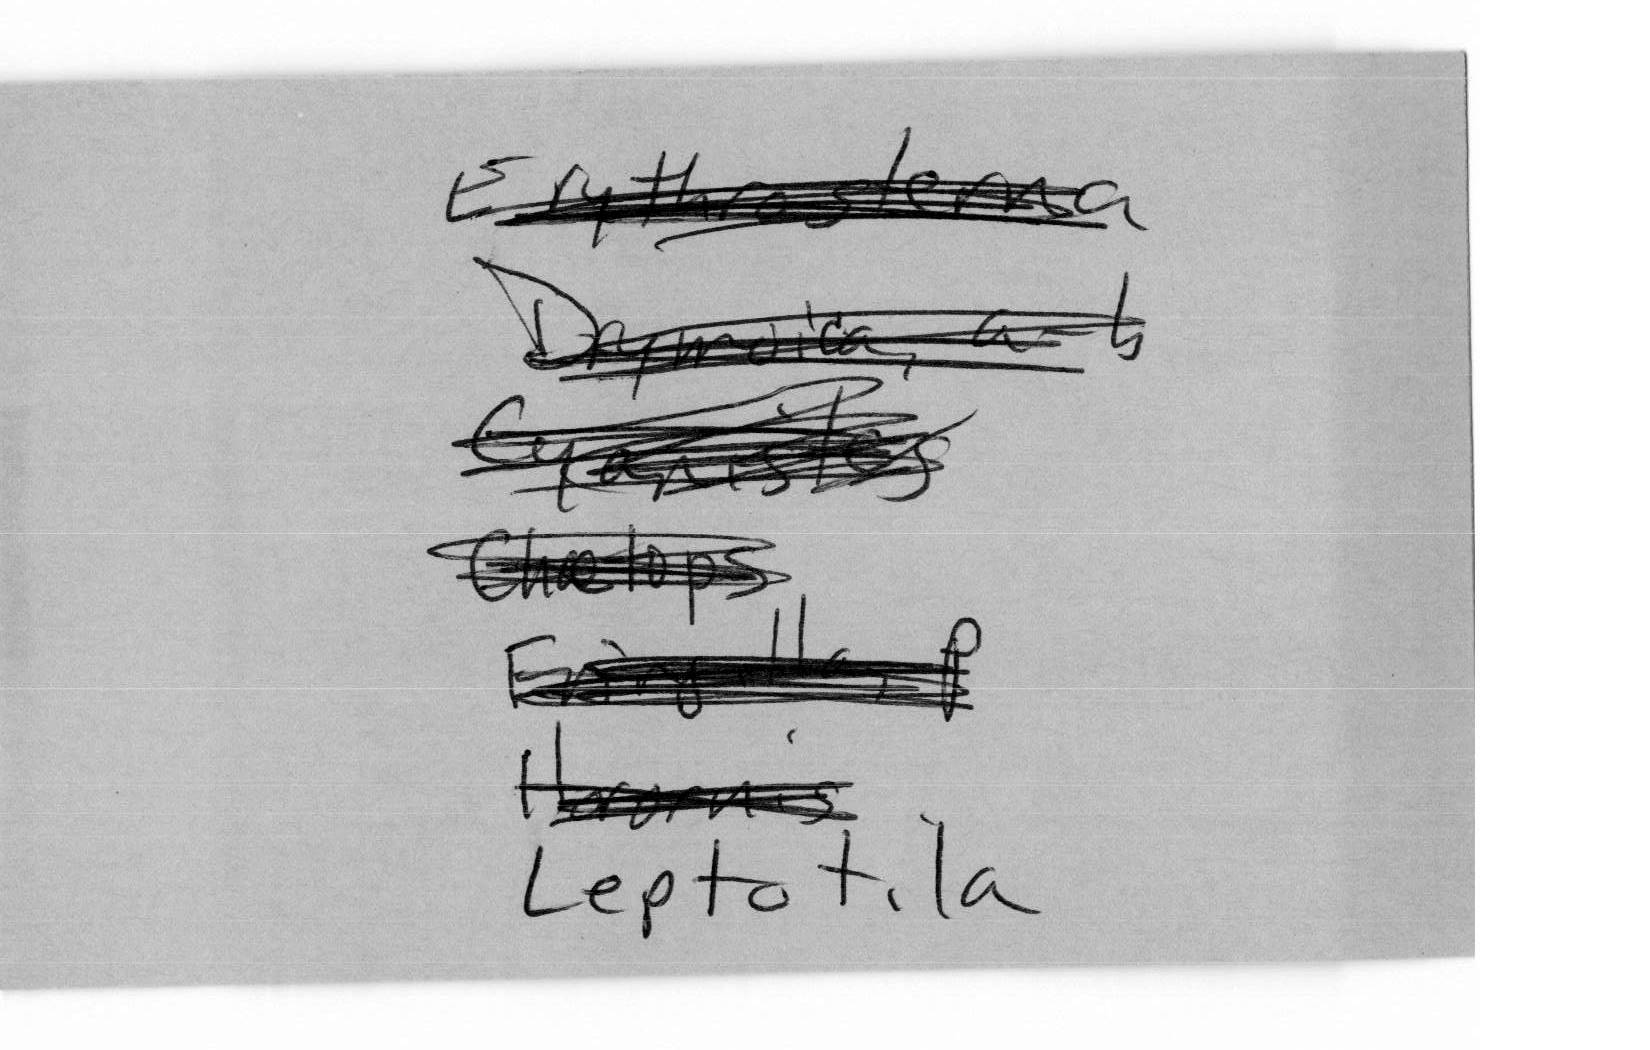 Erythrosterna
Drymoica, a-b
Cyanistes
Chætops
Eringilla, f
Horornis
Leptotila